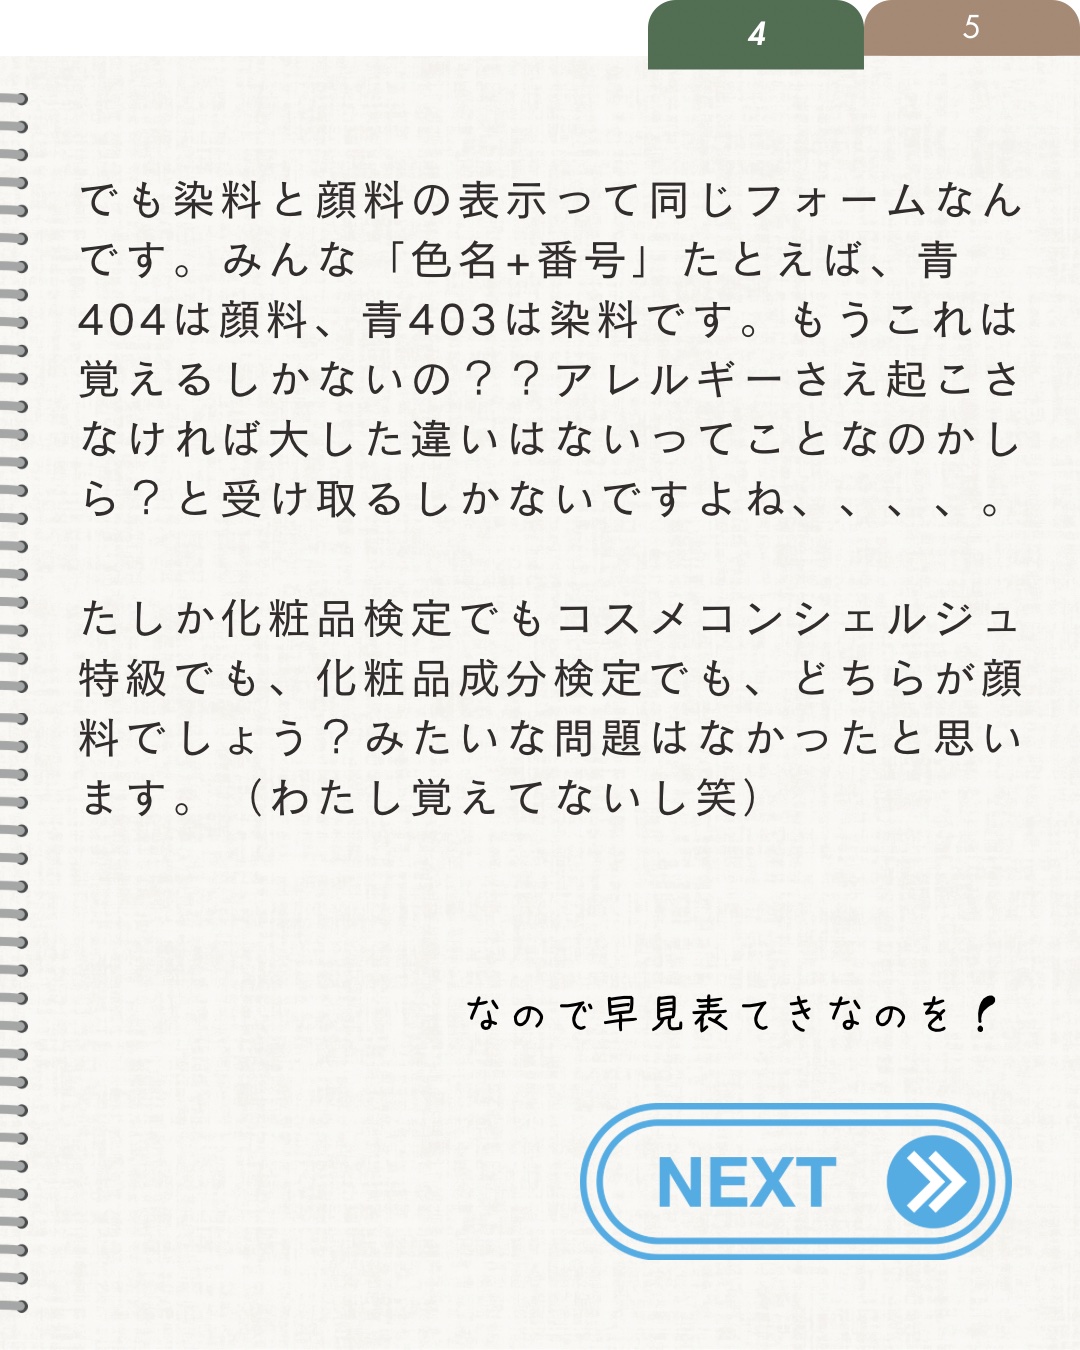 4
5
でも染料と顔料の表示って同じフォームなん
です。みんな「色名+番号」たとえば、青
404は顔料、青403は染料です。もうこれは
覚えるしかないの？？アレルギーさえ起こさ
なければ大した違いはないってことなのかし
ら？と受け取るしかないですよね、、、、。
たしか化粧品検定でもコスメコンシェルジュ
特級でも、化粧品成分検定でも、どちらが顔
料でしょう？みたいな問題はなかったと思い
ます。（わたし覚えてないし笑）
なので早見表てきなのを！
NEXT